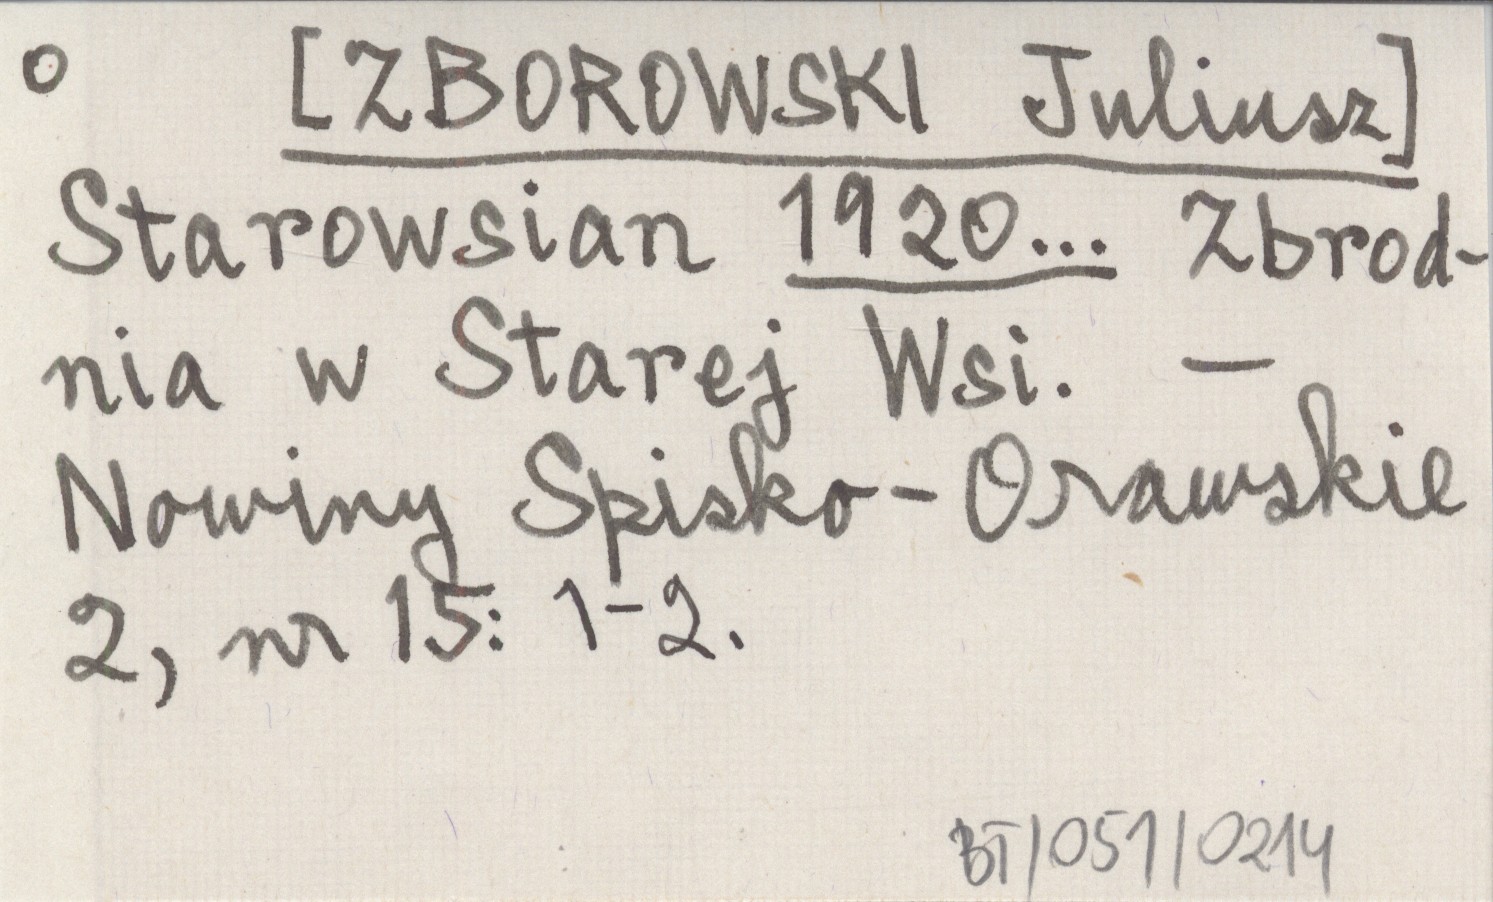 o [ZBOROWSKI Juliusz]
Starowsian 1920... Zbrod-
nia w Starej Wsi. —
Nowiny Spisko-Orawskie
2, nr 15: 1-2.
BT/051/0214